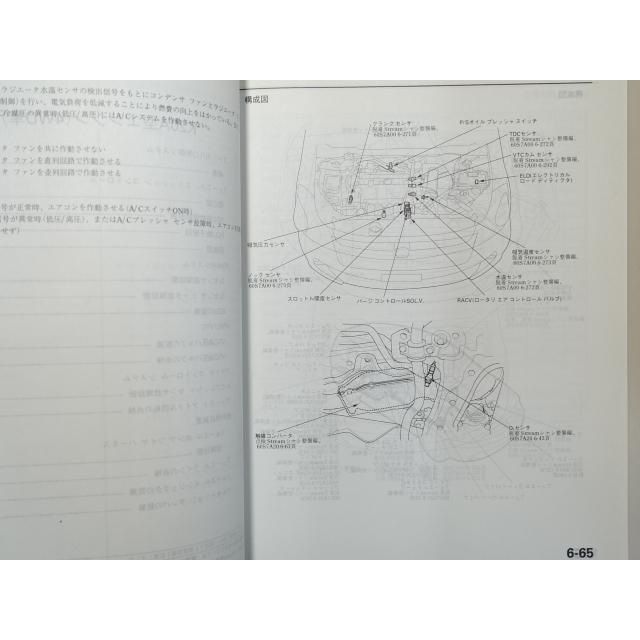 ラジエータ水温センサの検出信号をもとにコンデンサ ファンとラジエータ
制御)を行い、電気負荷を低減することにより燃費の向上をはかっている。
冷媒圧の異常時(低圧/高圧)にはA/Cシステムを作動させない。
タ ファンを共に作動させない
タ ファンを直列回路で作動させる
タ ファンを並列回路で作動させる
号が正常時、エアコンを作動させる(A/CスイッチON時)
号が異常時(低圧/高圧)、またはA/Cプレッシャ センサ故障時、エアコン
せず)
構成図
クランク センサ
脱着 Streamシャシ整備編、
60S7A00 6-271頁
P/Sオイル プレッシャ スイッチ
TDCセンサ
脱着 Streamシャシ整備編、
60S7A00 6-272頁
VTCカム センサ
脱着 Streamシャシ整備編、
60S7A00 6-292頁
ELD(エレクトリカル
ロード ディテクタ)
吸気圧力センサ
ノック センサ
脱着 Streamシャシ整備編、
60S7A00 6-275頁
スロットル開度センサ
パージ コントロールSOL.V.
吸気温度センサ
脱着 Streamシャシ整備編、
60S7A00 6-273頁
水温センサ
脱着 Streamシャシ整備編、
60S7A00 6-272頁
RACV(ロータリ エア コントロール バルブ)
触媒コンバータ
点検 Streamシャシ整備編、
60S7A20 6-62頁
O₂センサ
脱着 Streamシャシ整備編、
60S7A20 6-42頁
6-65